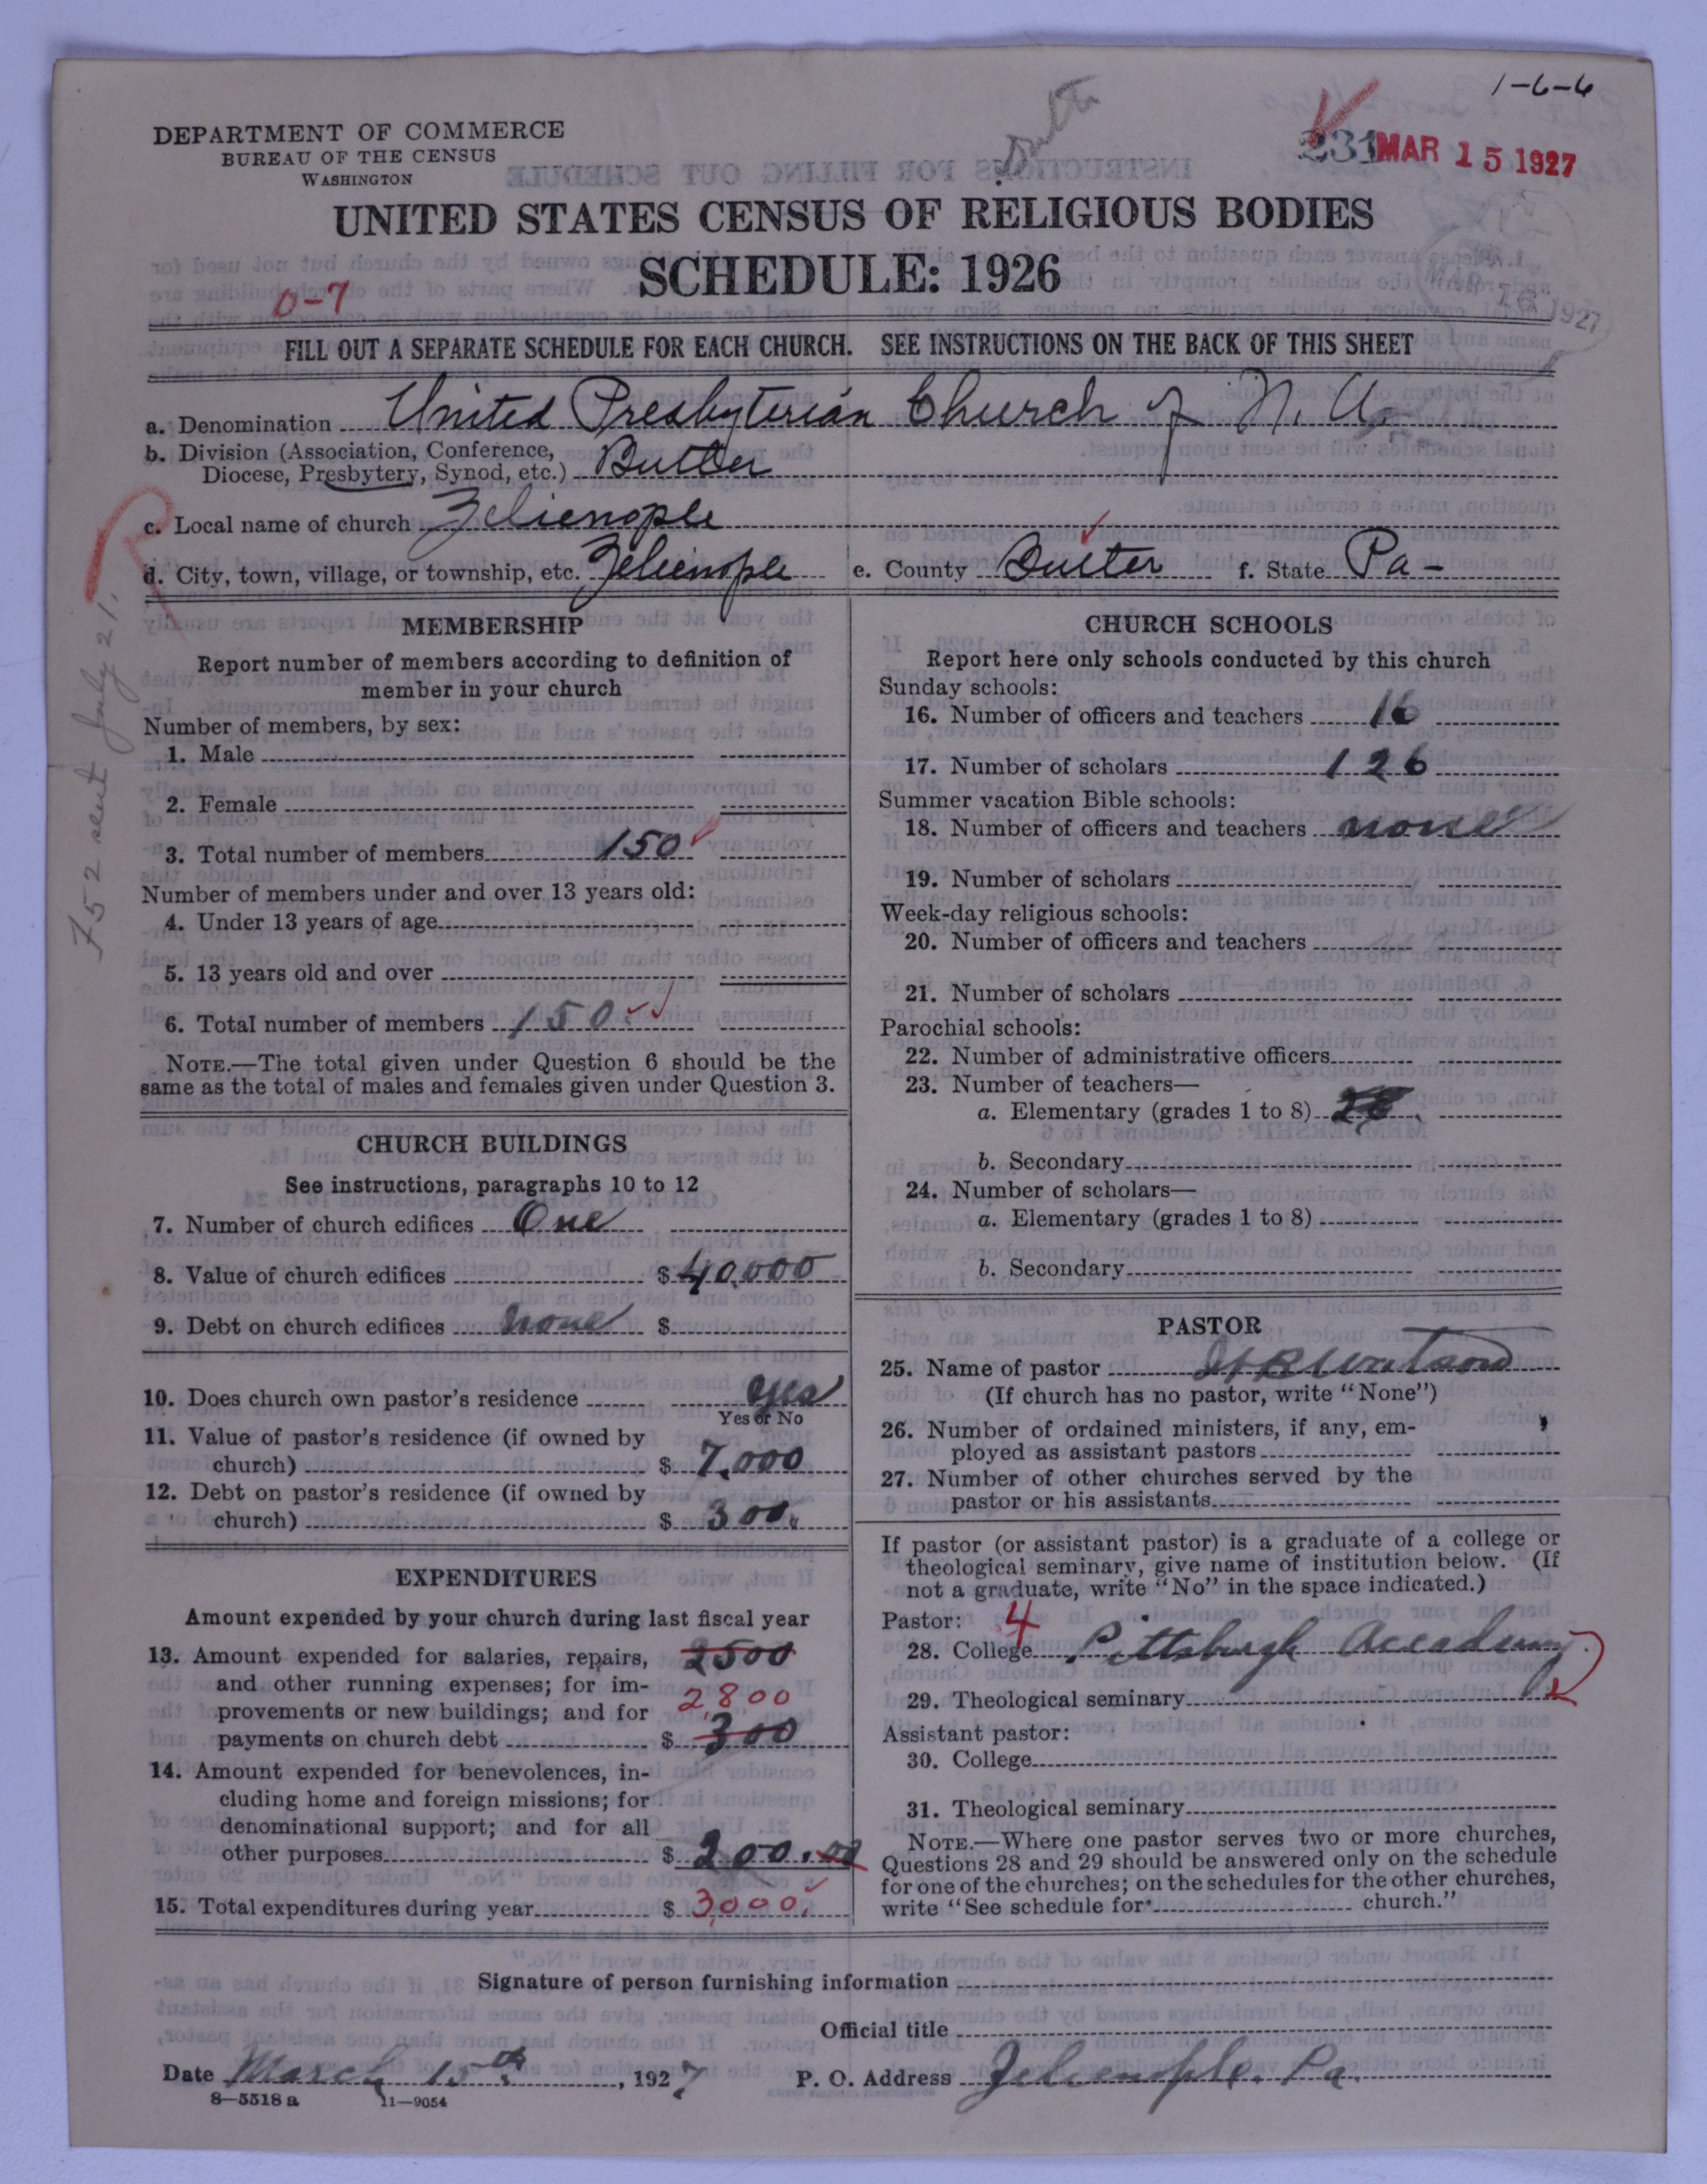 1-6-6
DEPARTMENT OF COMMERCE
BUREAU OF THE CENSUS
WASHINGTON
231 MAR 15 1927
UNITED STATES CENSUS OF RELIGIOUS BODIES
SCHEDULE: 1926
MAR 16 1927
0-7
FILL OUT A SEPARATE SCHEDULE FOR EACH CHURCH. SEE INSTRUCTIONS ON THE BACK OF THIS SHEET
a. Denomination United Presbyterian Church of N. A.
b. Division (Association, Conference,
Diocese, Presbytery, Synod, etc.) Butler
c. Local name of church Zelienople
d. City, town, village, or township, etc. Zelienople e. County Butler f. State Pa-
R
752 sent July 21.
MEMBERSHIP
Report number of members according to definition of
member in your church
Number of members, by sex:
1. Male
2. Female
3. Total number of members 150
Number of members under and over 13 years old:
4. Under 13 years of age
5. 13 years old and over
6. Total number of members 150
NOTE.—The total given under Question 6 should be the
same as the total of males and females given under Question 3.
CHURCH BUILDINGS
See instructions, paragraphs 10 to 12
7. Number of church edifices One
8. Value of church edifices $ 40,000
9. Debt on church edifices none $
10. Does church own pastor's residence yes
Yes or No
11. Value of pastor's residence (if owned by
church) $ 7,000
12. Debt on pastor's residence (if owned by
church) $ 300.
EXPENDITURES
Amount expended by your church during last fiscal year
13. Amount expended for salaries, repairs, 2500
and other running expenses; for im-
provements or new buildings; and for 2,800
payments on church debt $ 300
14. Amount expended for benevolences, in-
cluding home and foreign missions; for
denominational support; and for all
other purposes $ 200.00
15. Total expenditures during year $ 3,000.
CHURCH SCHOOLS
Report here only schools conducted by this church
Sunday schools:
16. Number of officers and teachers 16
17. Number of scholars 126
Summer vacation Bible schools:
18. Number of officers and teachers none
19. Number of scholars
Week-day religious schools:
20. Number of officers and teachers
21. Number of scholars
Parochial schools:
22. Number of administrative officers
23. Number of teachers—
a. Elementary (grades 1 to 8)
b. Secondary
24. Number of scholars—
a. Elementary (grades 1 to 8)
b. Secondary
PASTOR
25. Name of pastor Watson
(If church has no pastor, write "None")
26. Number of ordained ministers, if any, em-
ployed as assistant pastors
27. Number of other churches served by the
pastor or his assistants
If pastor (or assistant pastor) is a graduate of a college or
theological seminary, give name of institution below. (If
not a graduate, write "No" in the space indicated.)
Pastor: 4
28. College Pittsburgh Accademy
29. Theological seminary
Assistant pastor:
30. College
31. Theological seminary
NOTE.—Where one pastor serves two or more churches,
Questions 28 and 29 should be answered only on the schedule
for one of the churches; on the schedules for the other churches,
write "See schedule for church."
Signature of person furnishing information
Official title
Date March 15th, 1927 P. O. Address Zelienople. Pa.
8—5518 a 11—9054